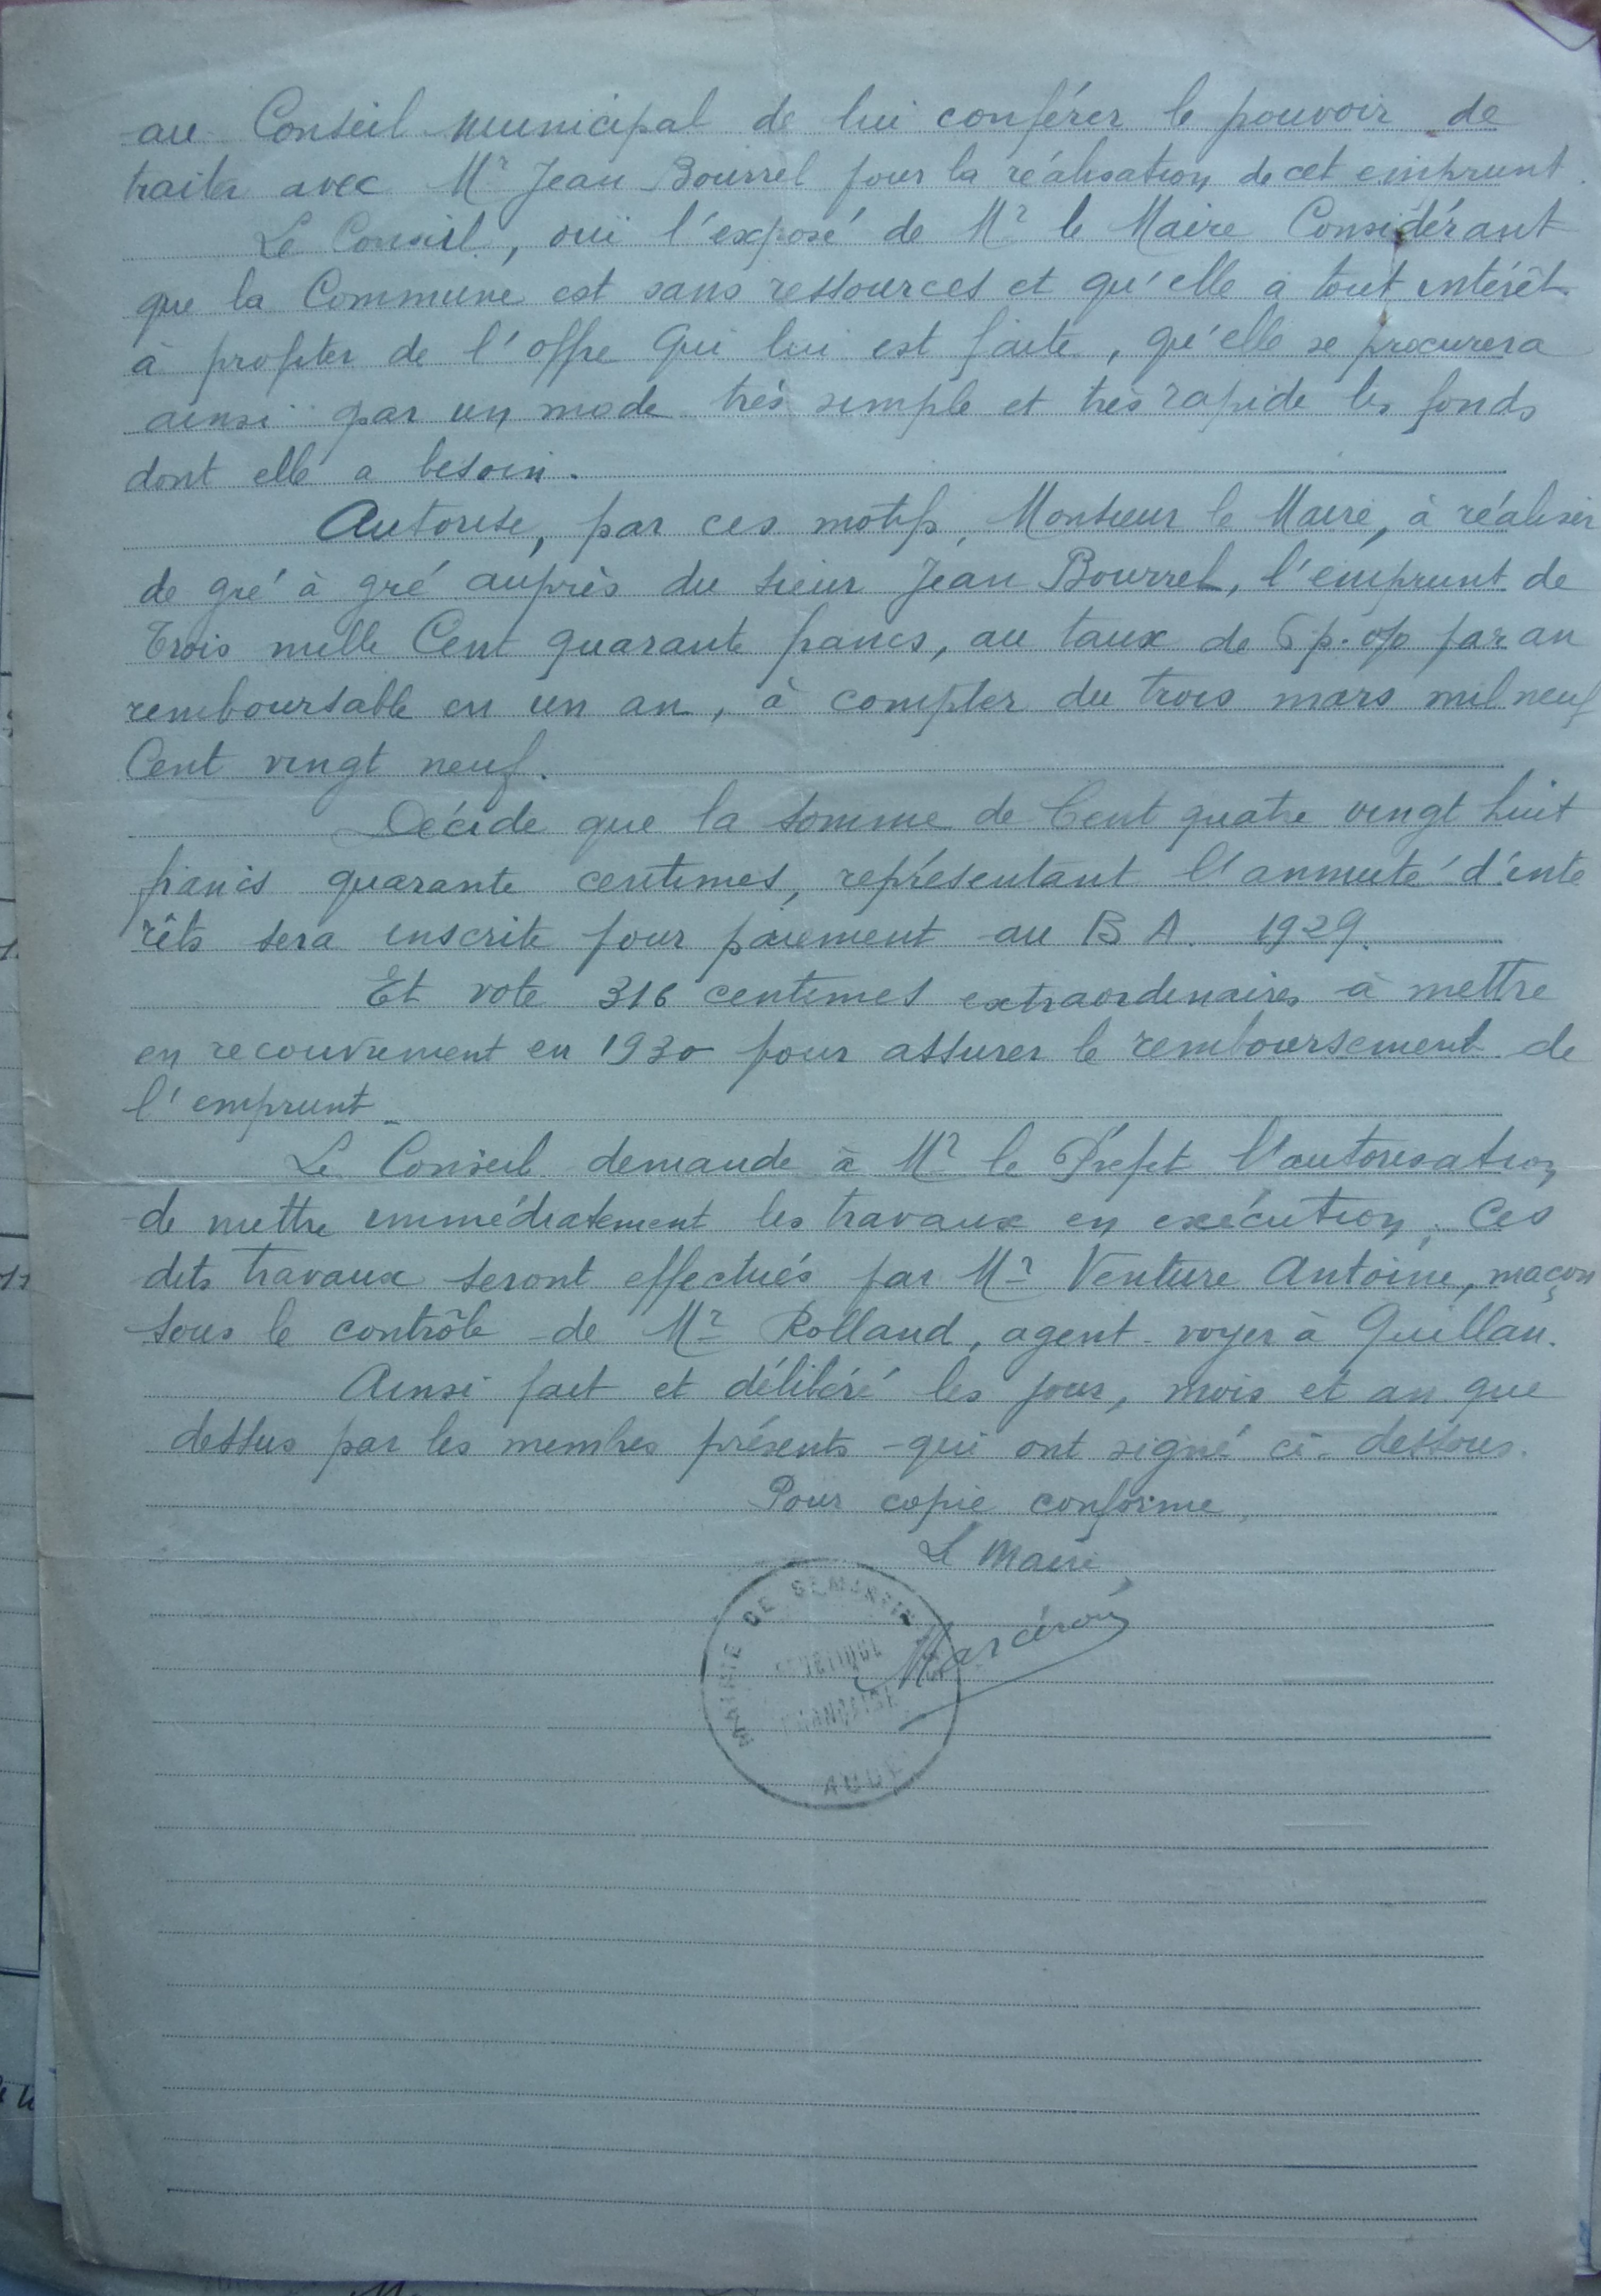 au Conseil Municipal de lui conférer le pouvoir de
traiter avec Mr Jean Bourrel pour la réalisation de cet emprunt.
Le Conseil, ouï l'exposé de Mr le Maire Considérant
que la Commune est sans ressources et qu'elle a tout intérêt
à profiter de l'offre qui lui est faite, qu'elle se procurera
ainsi par un mode très simple et très rapide les fonds
dont elle a besoin.
Autorise, par ces motifs, Monsieur le Maire, à réaliser
de gré à gré auprès du sieur Jean Bourrel, l'emprunt de
Trois mille Cent quarante francs, au taux de 6 p. % par an
remboursable en un an, à compter du trois mars mil neuf
Cent vingt neuf.
Décide que la somme de Cent quatre vingt huit
francs quarante centimes, représentant l'annuité d'inté
rêts sera inscrite pour paiement au B A. 1929.
Et vote 316 centimes extraordinaires à mettre
en recouvrement en 1930 pour assurer le remboursement de
l'emprunt
Le Conseil demande à Mr le Préfet l'autorisation
de mettre immédiatement les travaux en exécution. Ces
dits travaux seront effectués par Mr Venture Antoine, maçon
sous le contrôle de Mr Rolland, agent-voyer à Quillan.
Ainsi fait et délibéré les jour, mois et an que
dessus par les membres présents qui ont signé ci-dessous.
Pour copie conforme,
Le Maire
MAIRIE DE
AUDE